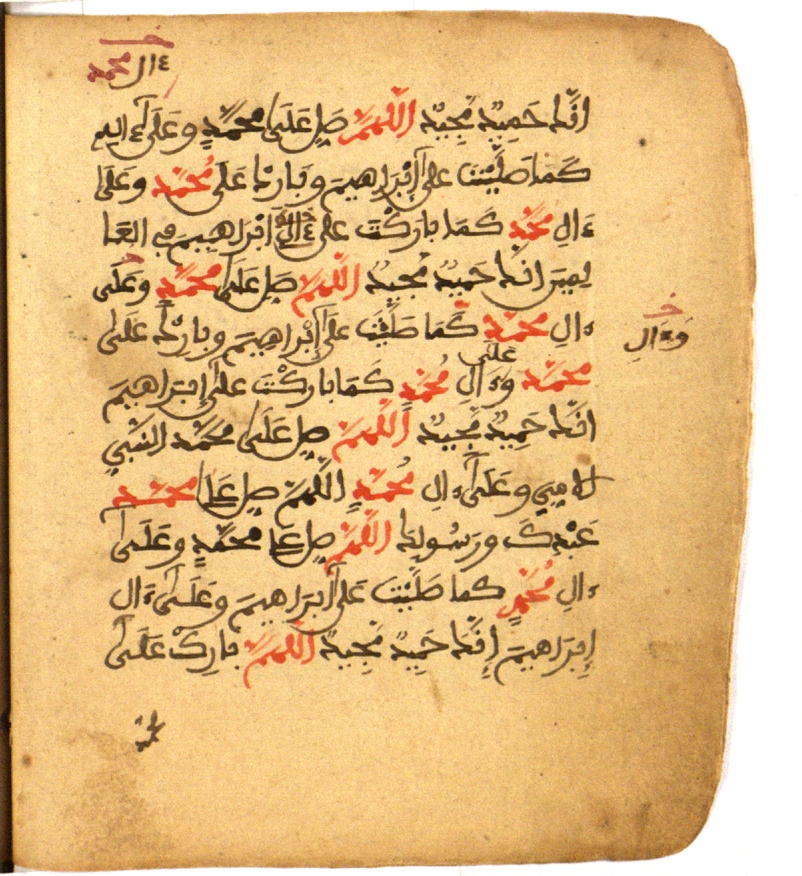 ءال محمد
انك حميد مجيد اللهم صل على محمد وعلى ءاله
كما صليت على إبراهيم وبارك على محمد وعلى
ءال محمد كما باركت على ءال ابراهيم في العا
لمين انك حميد مجيد اللهم صل على محمد وعلى
ءال محمد كما صليت على إبراهيم وبارك على
وءال
على
محمد وءال محمد كما باركت على إبراهيم
انك حميد مجيد اللهم صل على محمد النبي
الامي وعلى ءال محمد اللهم صل على محمد
عبدك ورسولك اللهم صل على محمد وعلى
ءال محمد كما صليت على ابراهيم وعلى ءال
إبراهيم إنك حميد مجيد اللهم بارك على